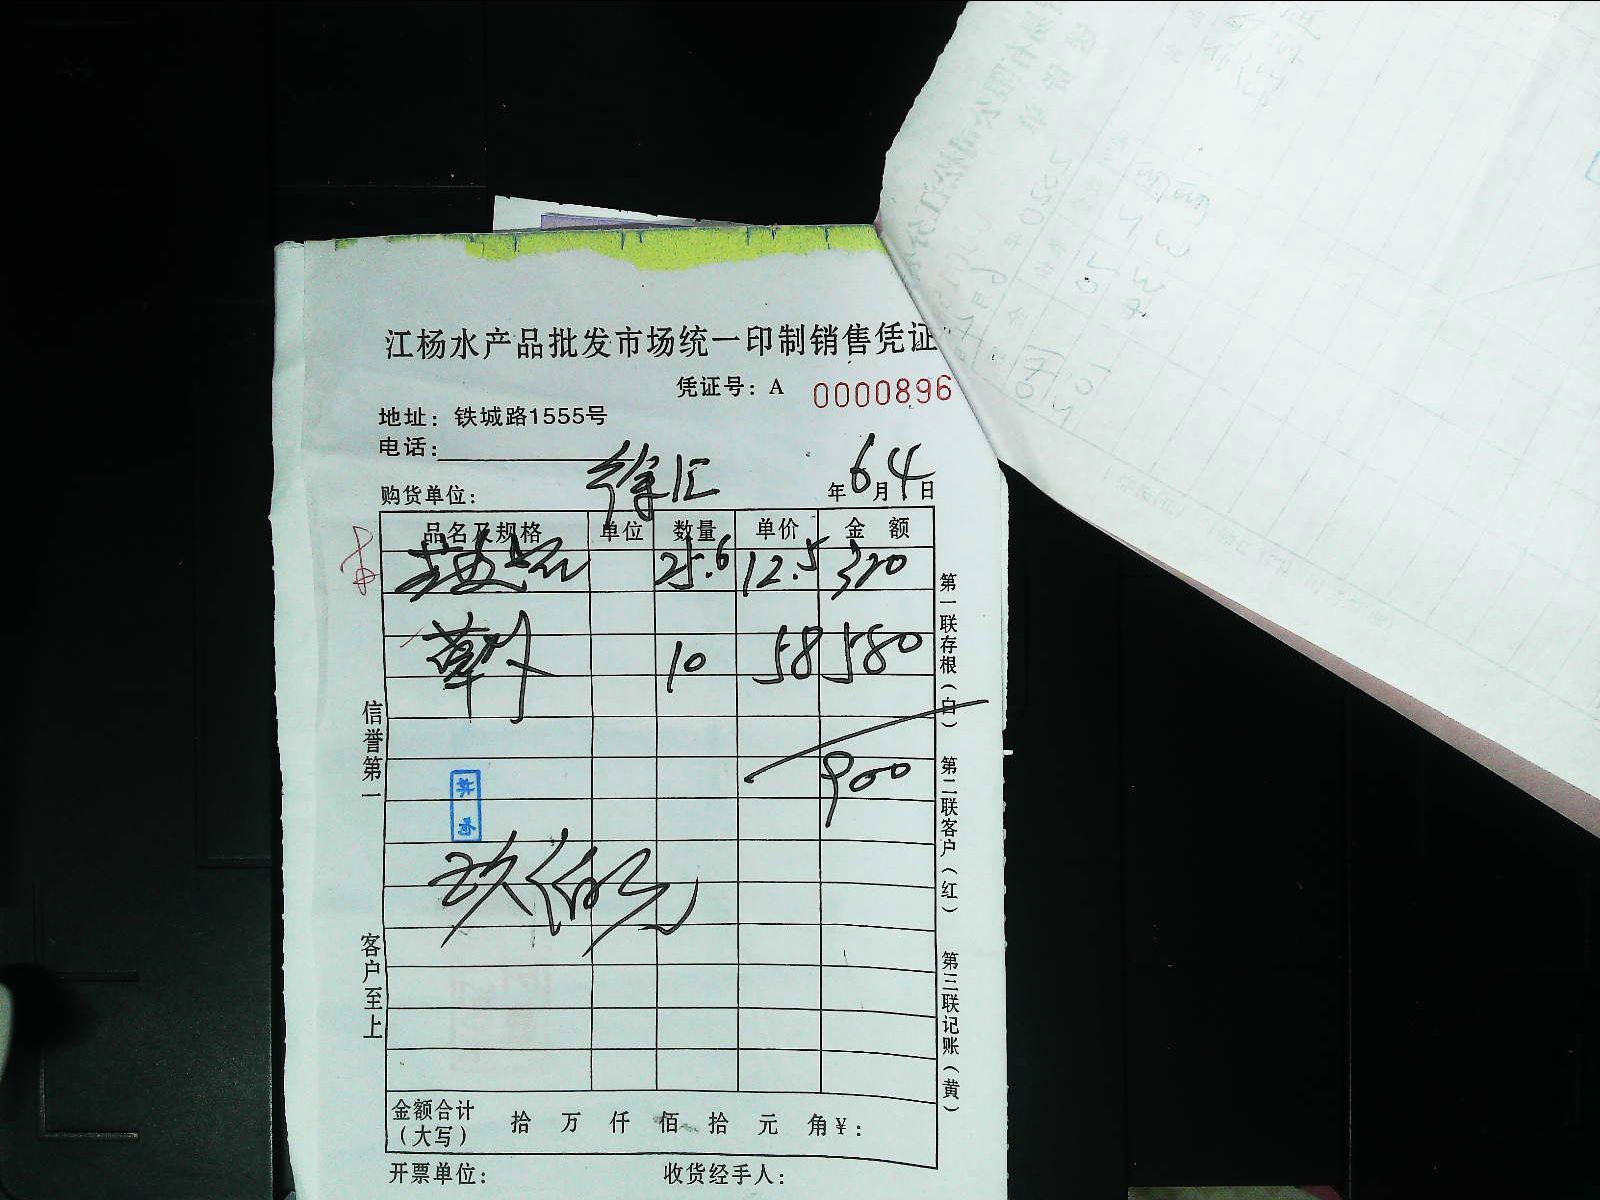 江杨水产品批发市场统一印制销售凭证
凭证号：A 0000896
地址：铁城路1555号
电话：
购货单位： 徐汇 年6月4日
品名及规格 单位 数量 单价 金额
25.6 12.5 320
草 10 58 580
900
玖佰元
金额合计（大写） 拾 万 仟 佰 拾 元 角 ¥：
开票单位： 收货经手人：
信誉第一
客户至上
第一联存根（白）
第二联客户（红）
第三联记账（黄）